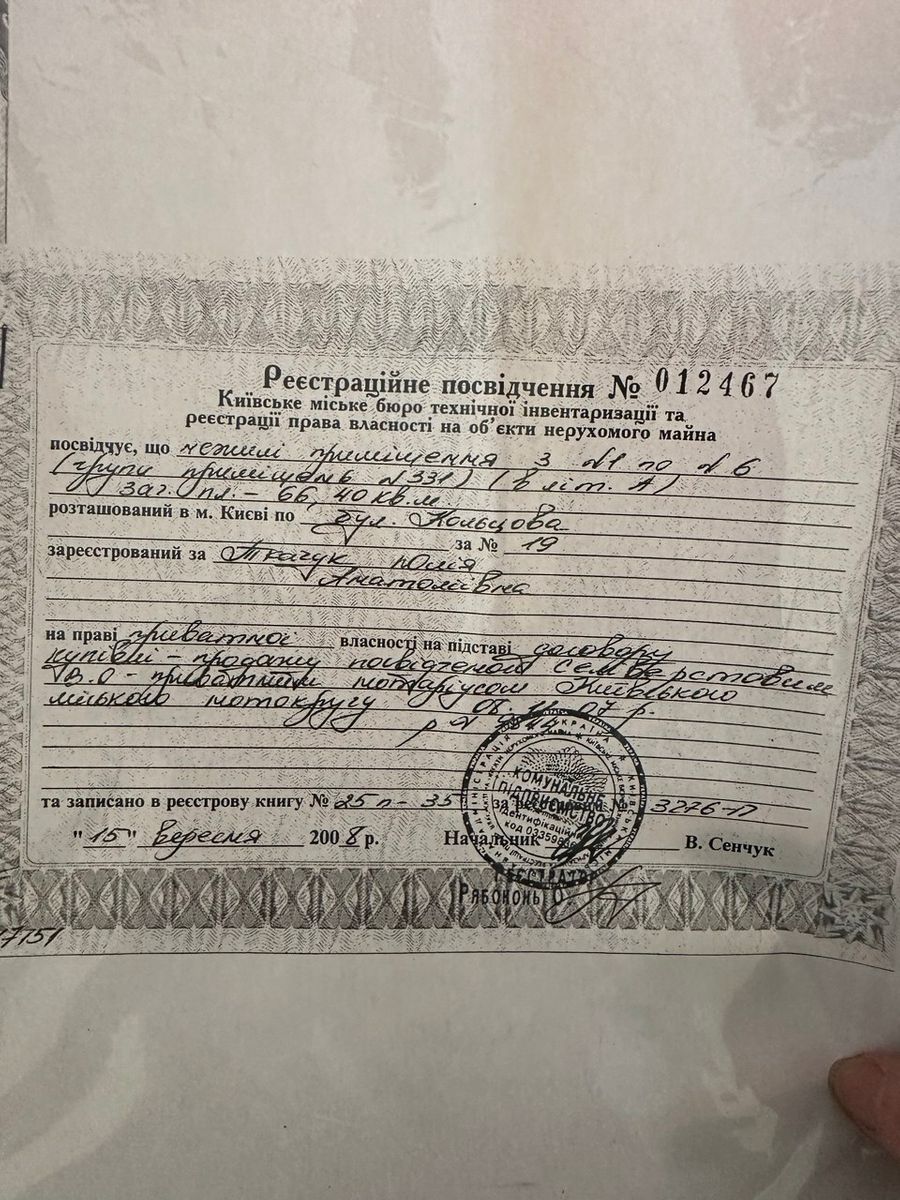 Реєстраційне посвідчення № 012467
Київське міське бюро технічної інвентаризації та
реєстрації права власності на об'єкти нерухомого майна
посвідчує, що нежилі приміщення з №1 по №6
(групи приміщень №331) (в літ. А)
заг. пл. - 66,40 кв.м
розташований в м. Києві по бул. Кольцова
за № 19
зареєстрований за Ткачук Юлія
Анатоліївна
на праві приватної власності на підставі договору
купівлі-продажу посвідченого
В.О - приватним нотаріусом Київського
міського нотокругу 07 р.
та записано в реєстрову книгу № 25п-35 за реєстровим № 3276-П
"15" вересня 2008 р. Начальник В. Сенчук
УКРАЇНА
КОМУНАЛЬНЕ
ПІДПРИЄМСТВО
ідентифікаційний
код
РЕЄСТРАТОР
Рябоконь О.